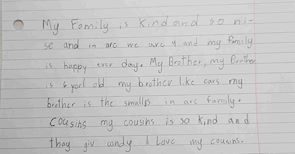 My Family is kind and so ni-
se and in arc we arc 4 and my family
is happy ever day. My Brother, my Brother
is 6 year old my brother like cars my
brother is the smalls in arc family.
Cousins my cousins is so kind and
they giv candy I Love my cousins.